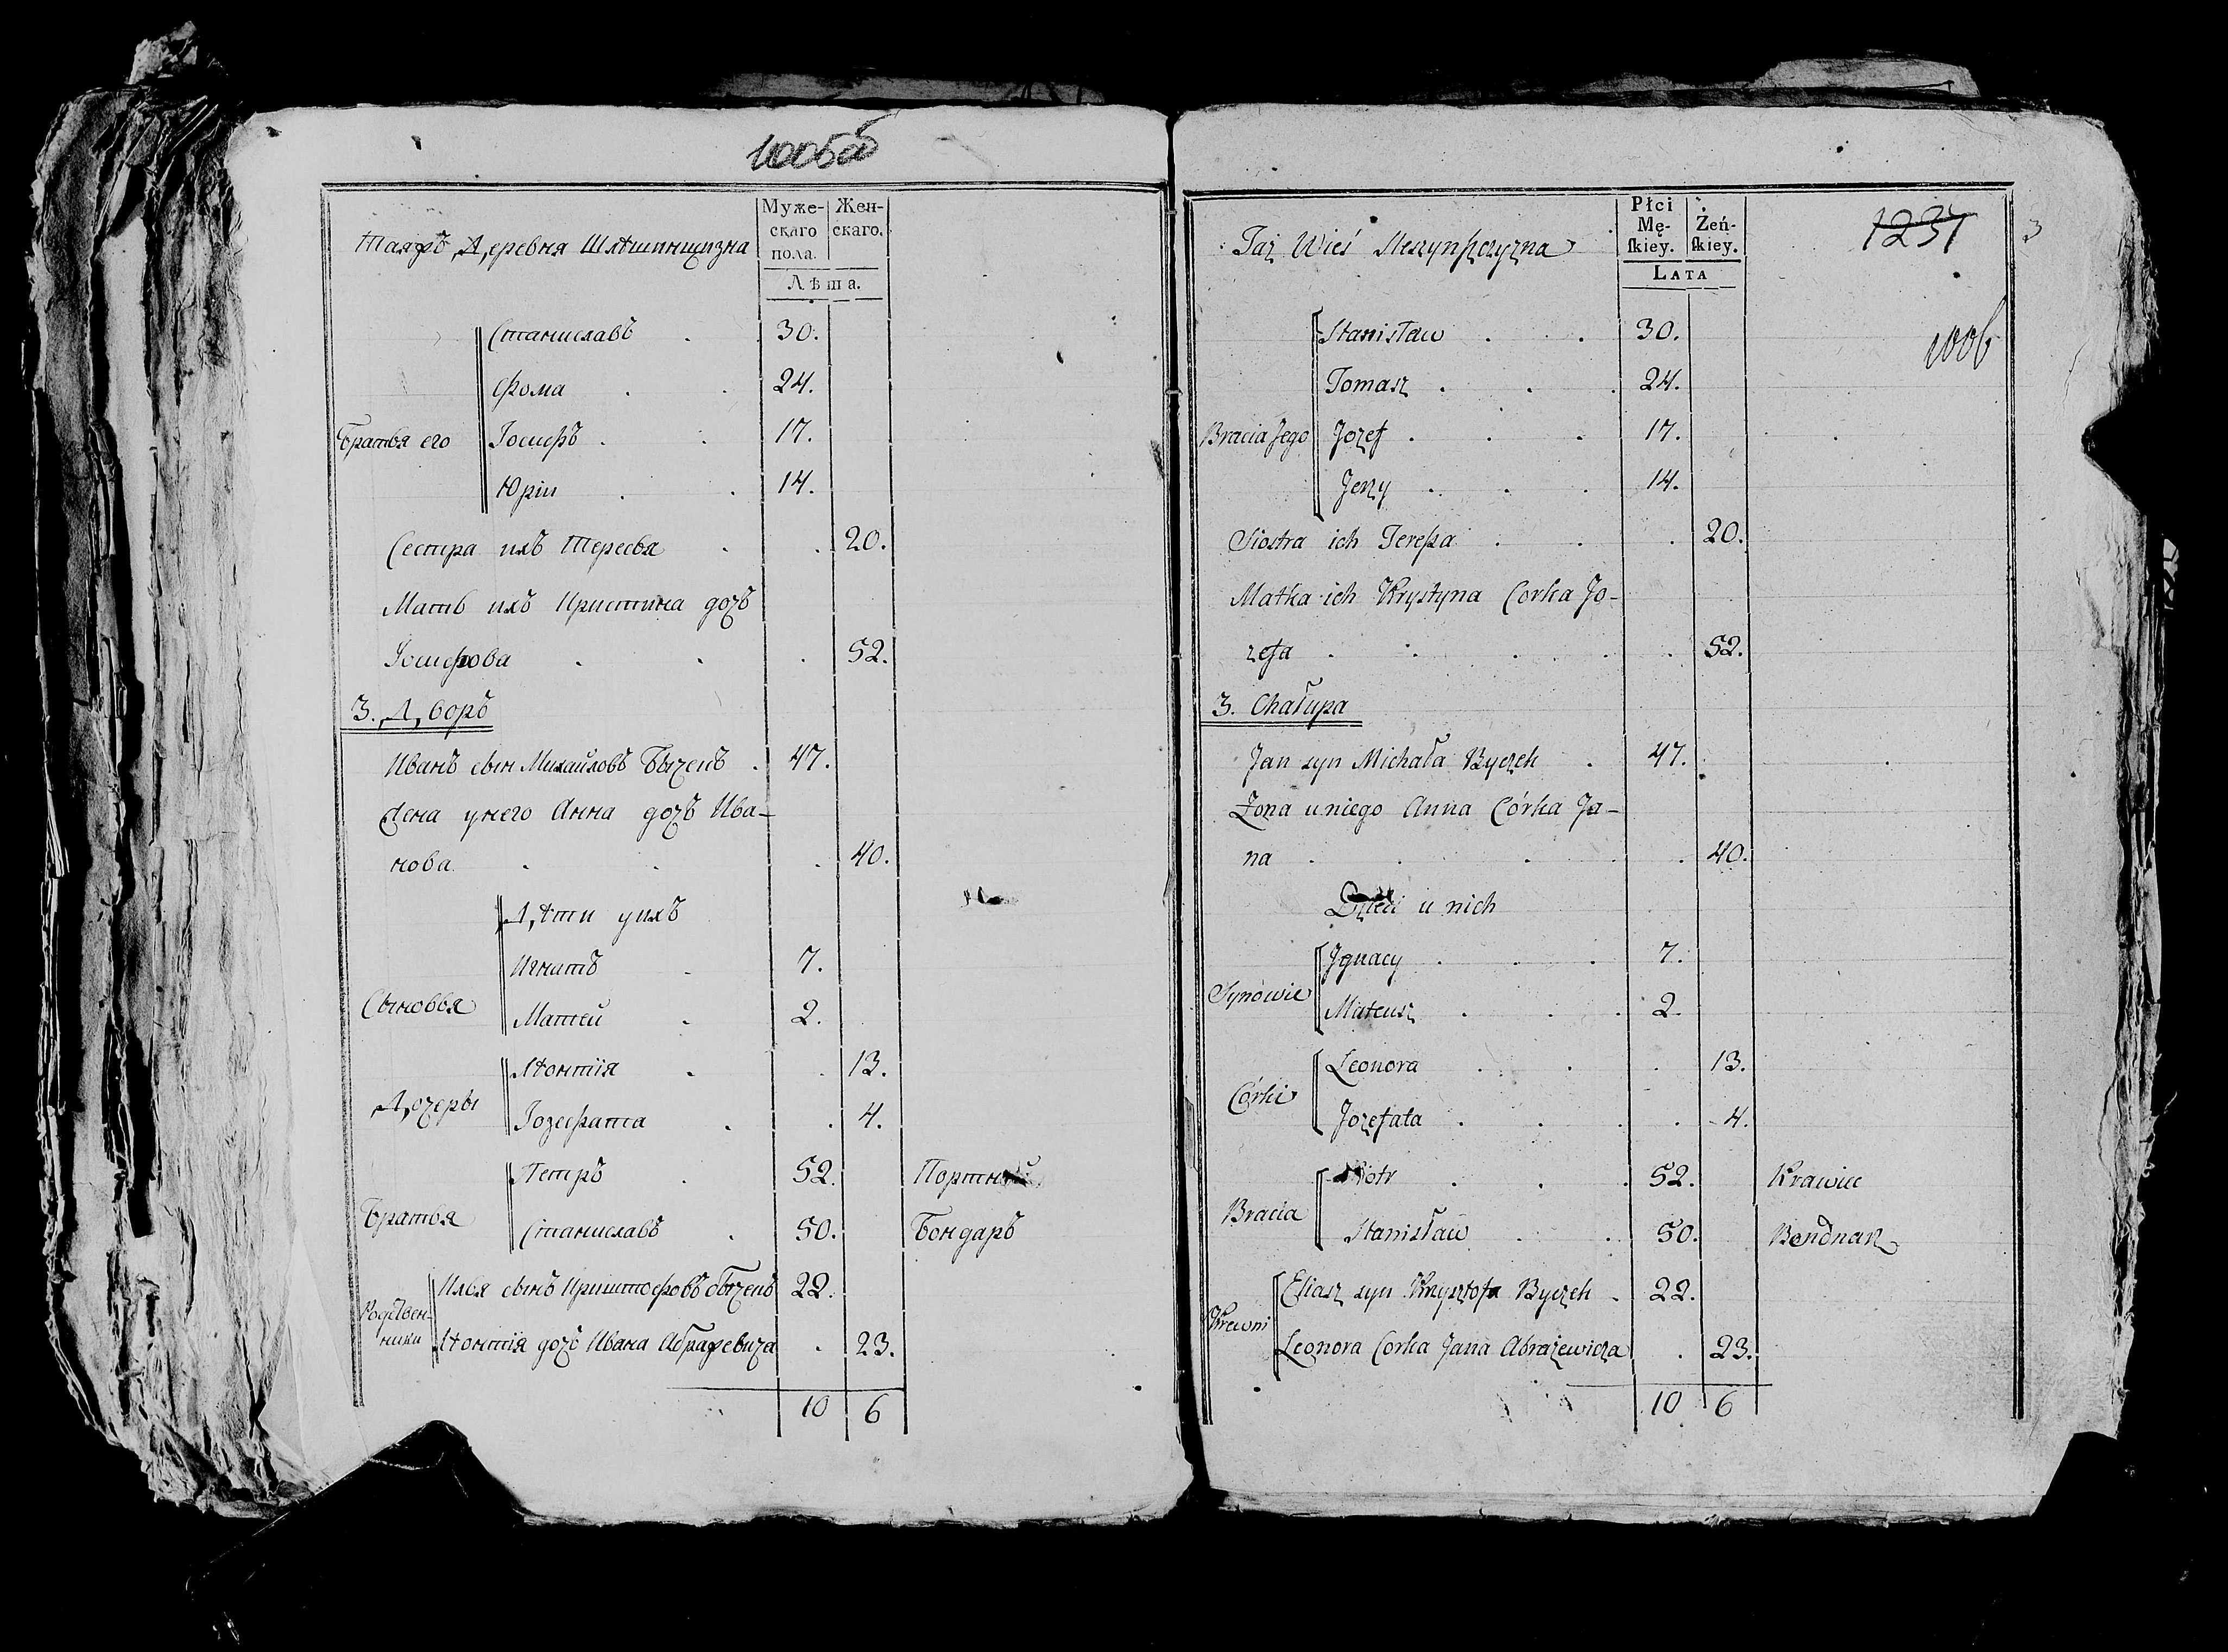 1005об
Муже-
скаго
пола.
Жен-
скаго.
Лѣта.
таяжъ Деревня
Братья его
Станиславъ 30.
Фома 24.
Іосифъ 17.
Юрій 14.
Сестра ихъ Тереса 20.
Мать ихъ Кристина дочь
Іосифова 52.
3. Дворъ
Иванъ сын Михайловъ Бычекъ 47.
Жена у него Анна дочь Ива-
нова 40.
Дѣти у ихъ
Сыновья
Игнатъ 7.
Матей 2.
Дочеры
13.
Іозефата 4.
Братья
Петръ 52. Портной
Станиславъ 50. Бондаръ
Родствен-
ники
Илья сынъ Криштофовъ Бычекъ 22.
дочь Ивана Абражевича 23.
10 6
1237
3
1006
Płci
Mę-
skiey.
Żeń-
skiey.
LATA
Taż Wieś
Bracia Jego
Stanisław 30.
Tomasz 24.
Jozef 17.
Jerzy 14.
Siostra ich Teressa 20.
Matka ich Krystyna Corka Jo-
zefa 52.
3. Chałupa
Jan syn Michała Byczek 47.
Żona u niego Anna Córka Ja-
na 40.
Dzieci u nich
Synowie
Jgnacy 7.
Mateusz 2.
Córki
Leonora 13.
Jozefata 4.
Bracia
Piotr 52. Krawiec
Stanisław 50. Bendnarz
Krewni
Eliasz syn Krzysztofa Byczek 22.
Leonora Corka Jana Abrażewicza 23.
10 6